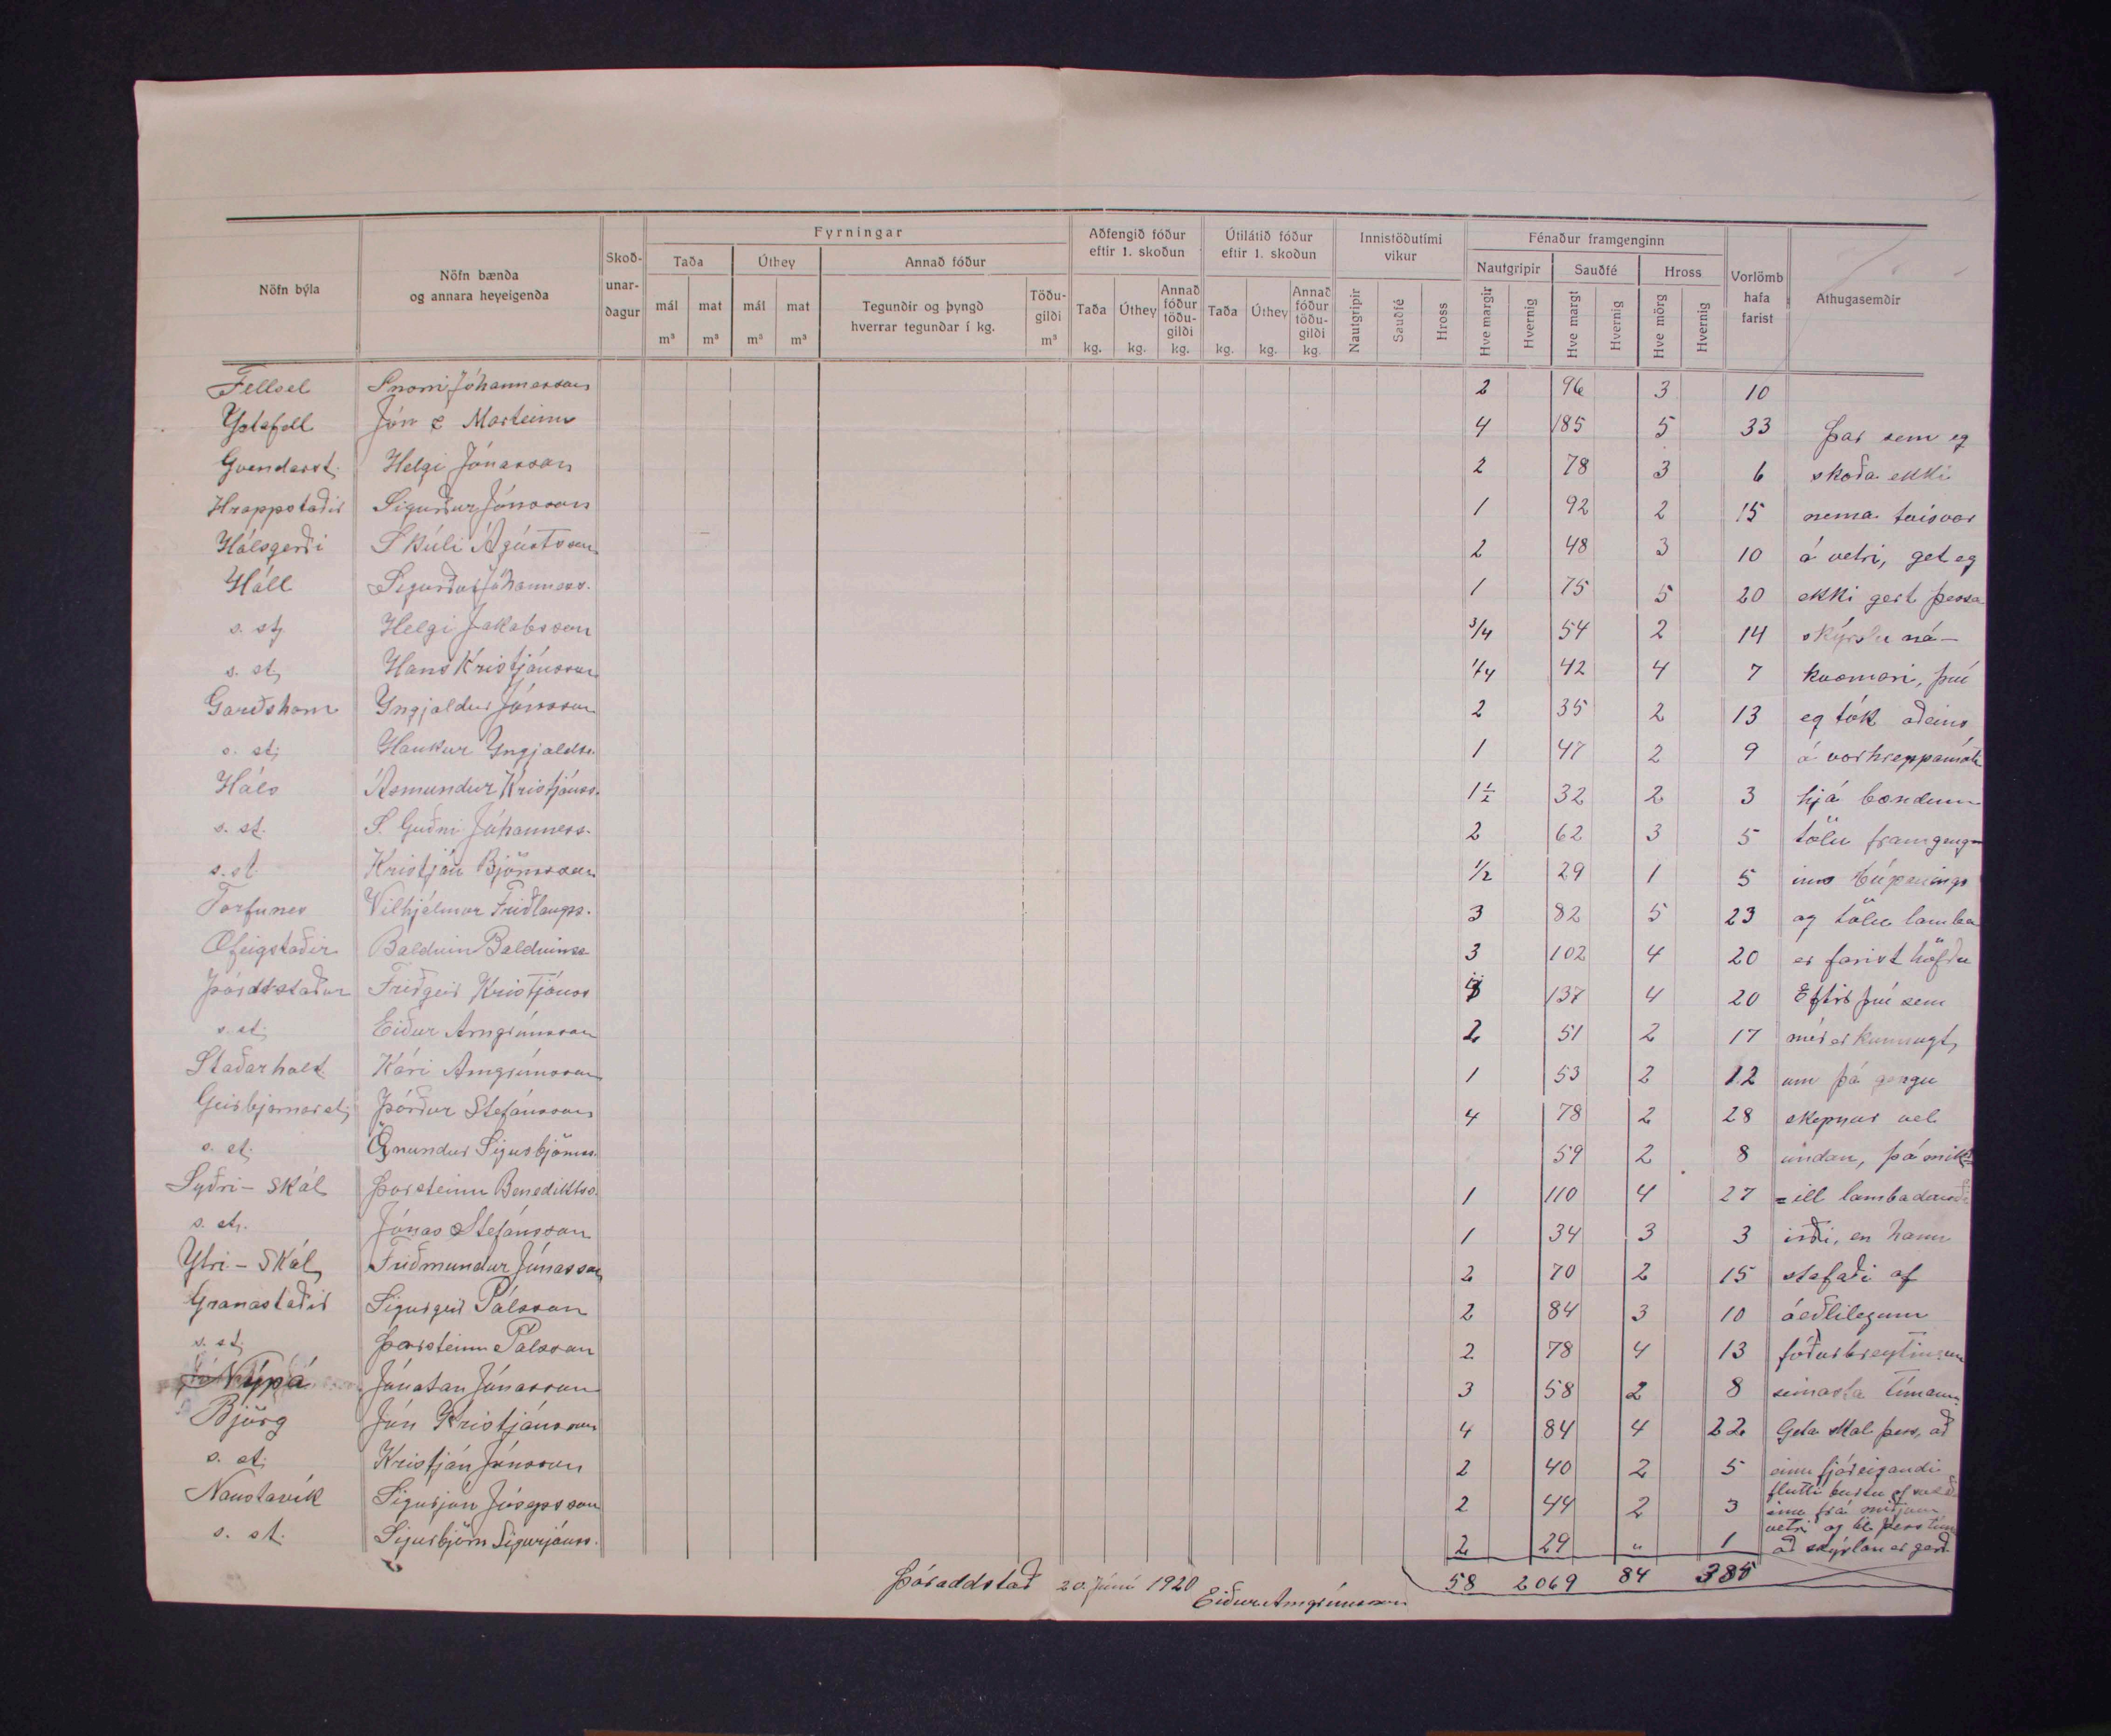 Fyrningar
Aðfengið fóður eftir 1. skoðun
Útilátið fóður eftir 1. skoðun
Innistöðutími vikur
Fénaður framgenginn
Nöfn býla
Nöfn bænda og annara heyeigenda
Skoðunardagur
Taða
Úthey
Annað fóður
Nautgripir
Sauðfé
Hross
Vorlömb hafa farist
Athugasemdir
mál m³
mat m³
mál m³
mat m³
Tegundir og þyngd hverrar tegundar í kg.
Töðugildi m³
Taða kg.
Úthey kg.
Annað fóður töðugildi kg.
Taða kg.
Úthey kg.
Annað fóður töðugildi kg.
Nautgripir
Sauðfé
Hross
Hve margir
Hvernig
Hve margt
Hvernig
Hve mörg
Hvernig
Fellsel Snorri Jóhannesson 2 96 3 10
Ystafell Jón & Marteinn 4 185 5 33 Þar sem eg
Gvendarst. Helgi Jónasson 2 78 3 6 skoða ekki
Hrappstaðir Sigurður Jónsson 1 92 2 15 nema tvisvar
Hálsgerði Skúli Ágústsson 2 48 3 10 á vetri, get eg
Háll Sigurður Jóhanness. 1 75 5 20 ekki gert þessa
s. st. Helgi Jakobsson 3/4 54 2 14 skýrslu ná-
s. st. Hans Kristjánsson 1/4 42 4 7 kvæmari, því
Garðshorn Yngjaldur Jónsson 2 35 2 13 eg tók aðeins
s. st. Haukur Yngjaldss. 1 47 2 9 á vorhreppamóti
Háls Ásmundur Kristjánss. 1 1/2 32 2 3 hjá bændum
s. st. S. Guðni Jóhanness. 2 62 3 5 tölu framgeng-
s. st. Kristján Björnsson 1/2 29 1 5 ins búpenings
Torfunes Vilhjálmur Friðlaugs. 3 82 5 23 og tölu lamba
Ófeigstaðir Balduin Balduinss 3 102 4 20 er farist höfðu
Þóroddstaður Friðgeir Kristjánss 137 4 20 Eftir því sem
s. st. Eiður Arngrímsson 2 51 2 17 mér er kunnugt,
Staðarholt Kári Arngrímsson 1 53 2 12 um þá gengu
Geirbjarnarst. Þórður Stefánsson 4 78 2 28 skepnur vel
s. st. Önundur Sigurbjörnss. 59 2 8 undan, þá mik-
Syðri-Skál Þorsteinn Benediktss. 1 110 4 27 =ill lambadauði
s. st. Jónas Stefánsson 1 34 3 3 irði, en hann
Ytri-Skál Friðmundur Jónasson 2 70 2 15 stafaði af
Granastaðir Sigurgeir Pálsson 2 84 3 10 óeðlilegum
s. st. Þorsteinn Pálsson 2 78 4 13 fóðurbreytingum
Nýpá Jónatan Jónasson 3 58 2 8 seinasta tímann.
Björg Jón Kristjánsson 4 84 4 22 Geta skal þess, að
s. st. Kristján Jónsson 2 40 2 5 einn fjáreigandi
Naustavík Sigurjón Jósepsson 2 44 2 3 flutti burtu af
inu frá miðjum
s. st. Sigurbjörn Sigurjónss. 2 29 " 1 vetri og til þess tíma
að skýrslan er gerð.
58 2069 84 385
Þóroddstað 20. Júní 1920
Eiður Arngrímsson